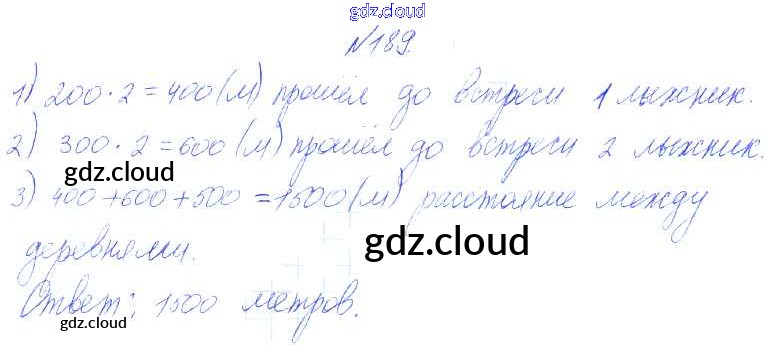 gdz.cloud
№189.
1) 200·2=400(м) прошёл до встречи 1 лыжник.
2) 300·2=600(м) прошёл до встречи 2 лыжник.
gdz.cloud
3) 400+600+500=1500(м) расстояние между
деревнями.
gdz.cloud
Ответ: 1500 метров.
gdz.cloud